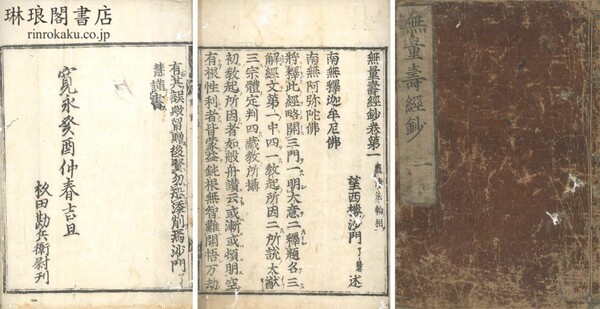 琳琅閣書店
rinrokaku.co.jp
無量壽經鈔 一
無量壽經鈔卷第一
望西樓沙門 了慧 述
南無釋迦牟尼佛
南無阿弥陀佛
將釋此經略開三門一明大意二釋題名三
解經文第一中四一教起所因二所說大猷
三宗體定判四藏教所攝
初教起所因者如般舟讚云或漸或頓明空
有根性利者皆蒙益鈍根無智難開悟万劫
寛永癸酉仲春吉旦
秋田勘兵衛尉刊